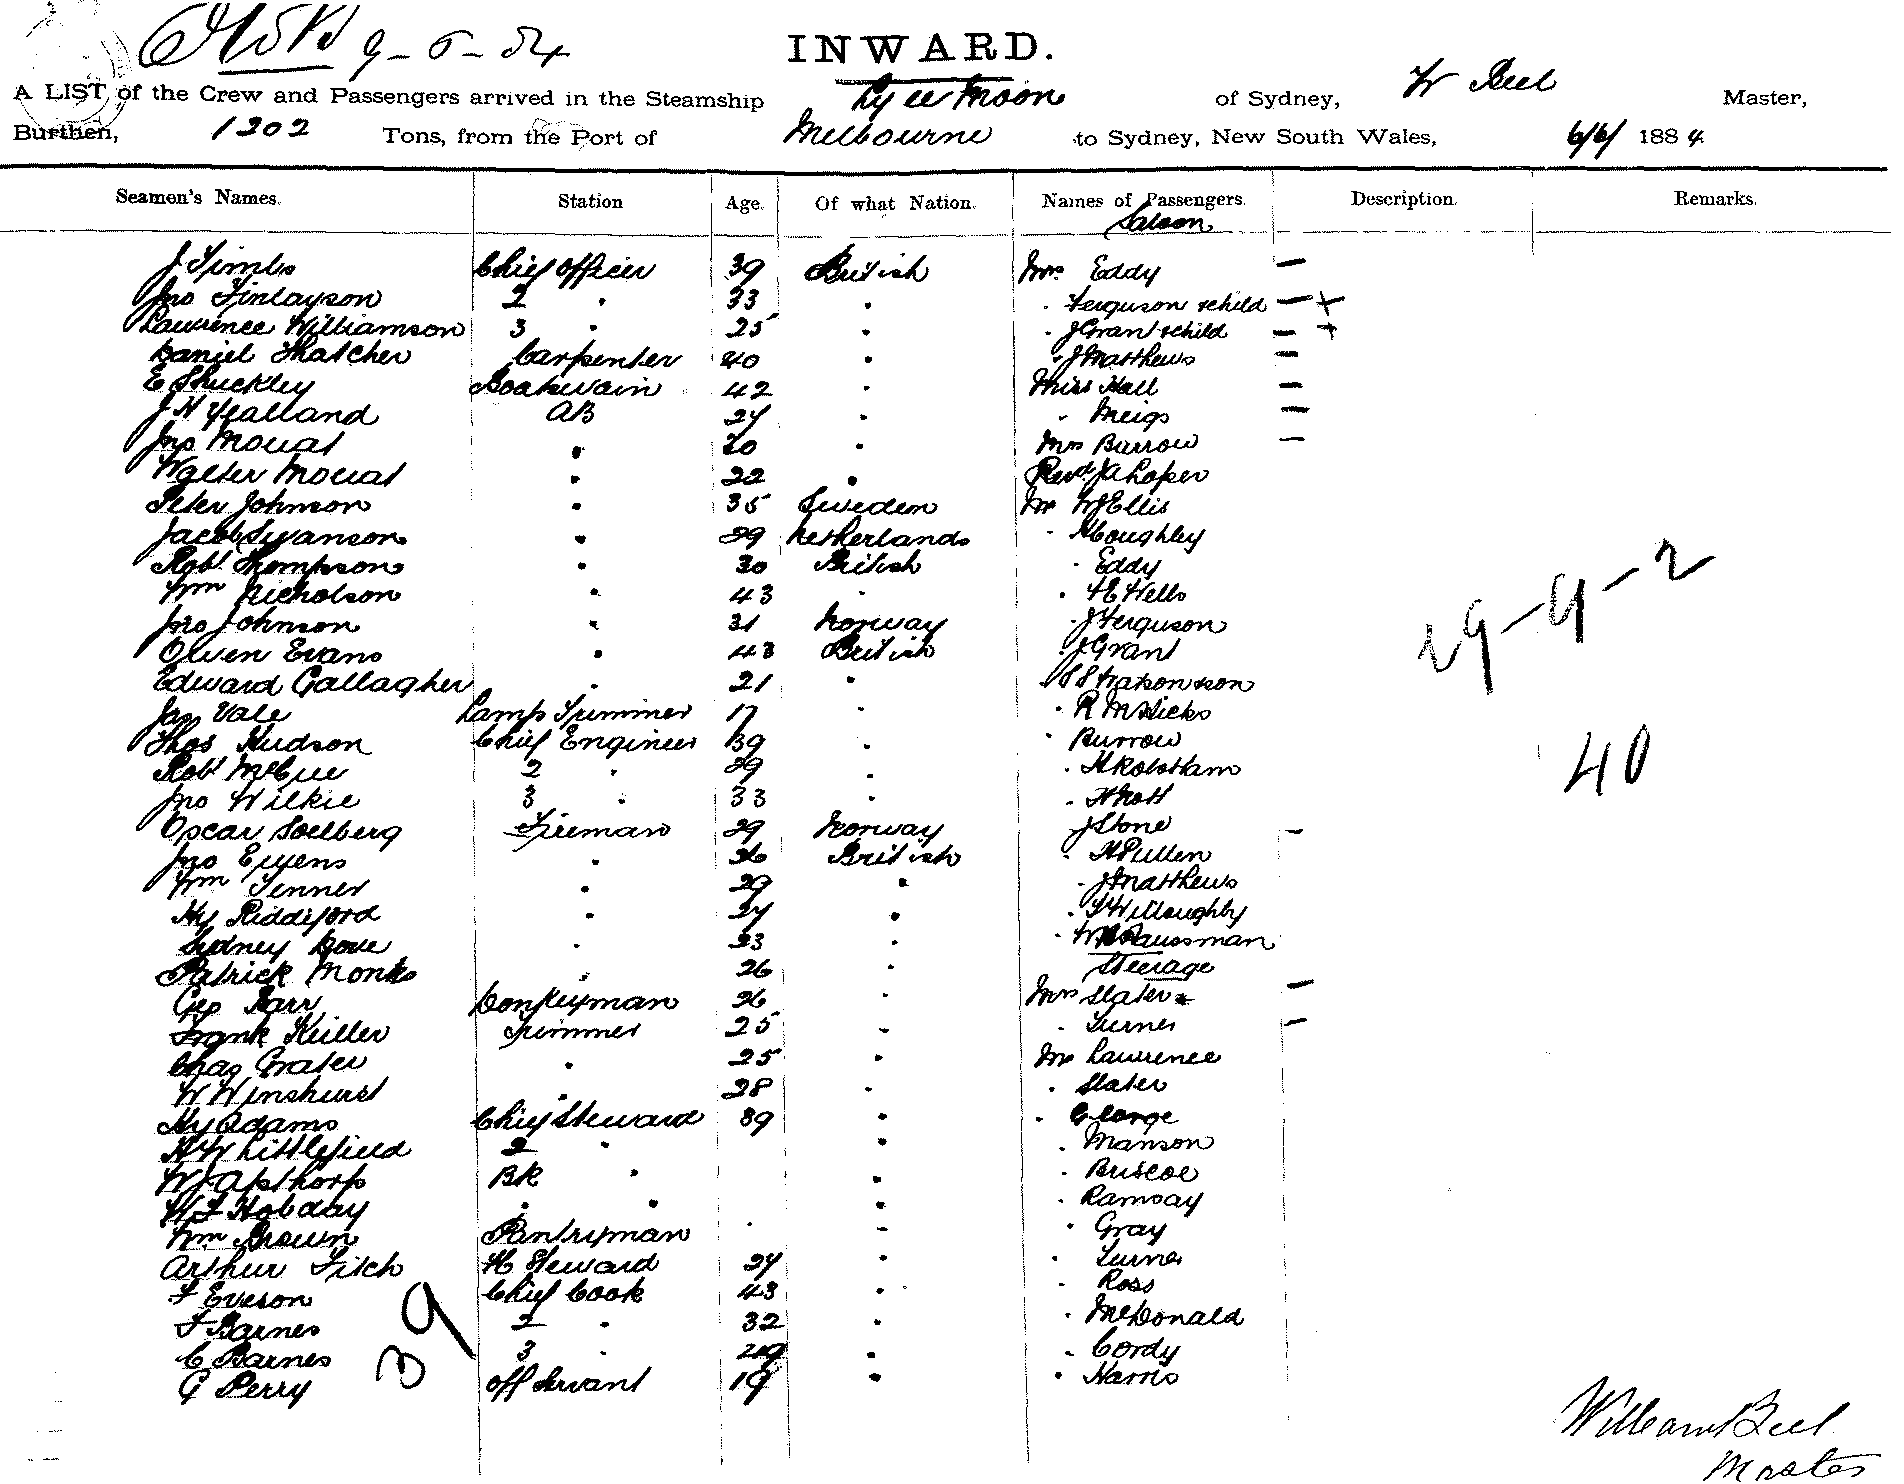 9-6-84
INWARD.
A LIST of the Crew and Passengers arrived in the Steamship Ly ee Moon of Sydney, W Beel Master,
Burthen, 1202 Tons, from the Port of Melbourne to Sydney, New South Wales, 6/6/ 1884
Seamen's Names. Station Age. Of what Nation. Names of Passengers. Description. Remarks.
Saloon
J Timbs Chief Officer 39 British Mrs Eddy —
Jno Finlayson 2 " 33 " " Ferguson & child — +
Lawrence Williamson 3 " 25 " " J Grant & child — +
Daniel Thatcher Carpenter 40 " " J Matthews —
E Shuckley Boatswain 42 " Miss Hall —
J H Yealland AB 24 " " Meigs —
Jno Mouat " 20 " Mrs Burrow —
Walter Mouat " 22 " Revd
Peter Johnson " 35 Sweden Mr W J Ellis
Jacob Swanson " 29 Netherlands " H Coughley
Robt Thompson " 30 British " Eddy
Wm Nicholson " 43 " " H E Wells
Jno Johnson " 31 Norway " J Ferguson
Owen Evans " 43 British " J Grant
Edward Gallagher " 21 " " S S Watson & son
Jas Vale Lamp Trimmer 17 " " R M Hicks
Thos Hudson Chief Engineer 39 " " Burrow
Robt McCue 2 " 29 " " H Robotham
Jno Wilkie 3 " 33 " " H Nott
Oscar Soelberg Fireman 29 Norway J Stone —
Jno Ewens " 26 British " H Pullen
Wm Jenner " 29 " " J Matthews
Hy Riddiford " 24 " " T Willoughby
Sydney Dove " 23 " " Haussman
Patrick Monks " 26 " Steerage
Geo Barr Donkeyman 26 " Mrs Slater —
Frank Keiller Trimmer 25 " " Turner —
Chas Grater " 25 " Mr Lawrence
W Winshurst " 28 " " Slater
Hy Adams Chief Steward 39 " " George
H W Littlefield 2 " " " Manson
W J Apthorp BR " " " Briscoe
W F Hobday " " " " Ramsay
Wm Brown Pantryman " " " Gray
Arthur Fitch H Steward 24 " " Turner
F Eveson Chief Cook 43 " " Ross
F Barnes 2 " 32 " " McDonald
C Barnes 3 " 29 " " Cordy
G Perry Off Servant 19 " " Harris
39
29-9-2
40
William Beel
Master